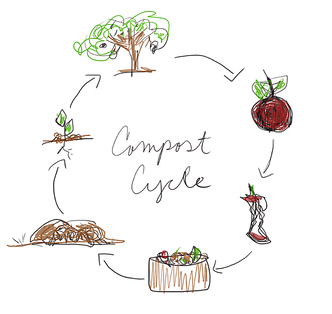 Compost
Cycle